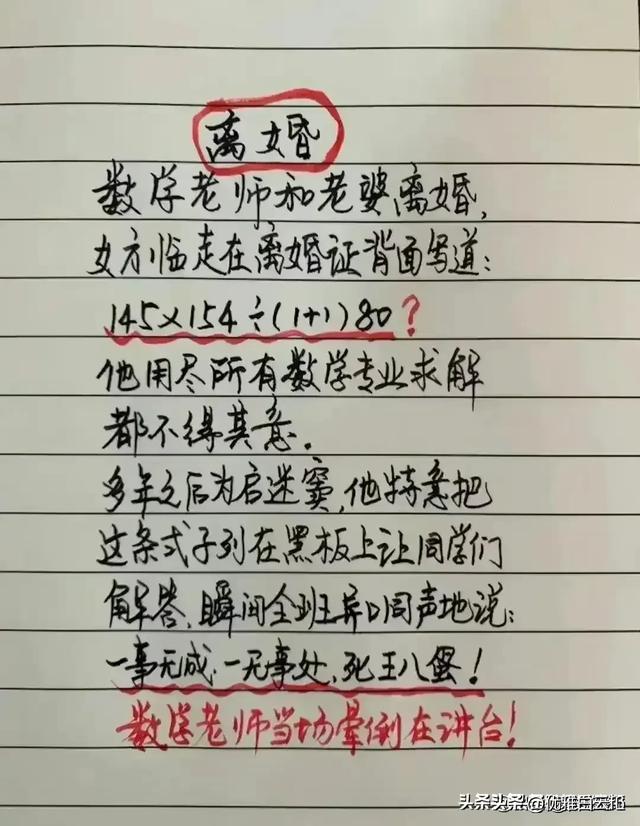 离婚
数学老师和老婆离婚,
女方临走在离婚证背面写道:
145×154÷(1+1)80?
他用尽所有数学专业求解
都不得其意.
多年之后为启迷窦,他特意把
这条式子列在黑板上让同学们
解答,瞬间全班异口同声地说:
一事无成,一无事处,死王八蛋!
数学老师当场晕倒在讲台!
头条